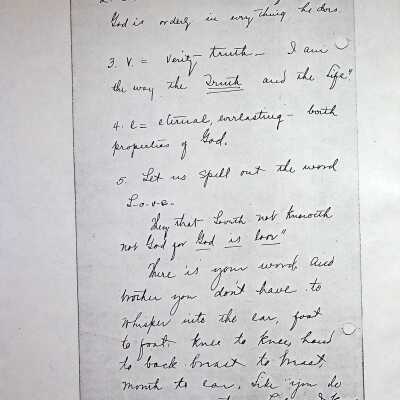 God is orderly in everything he does.
3. V. = Verity - truth - I am
the way the Truth and the life"
4. E = eternal, everlasting - both
properties of God.
5. Let us spell out the word
L.o.v.e.
They that Loveth not Knoweth
not God for God is love"
There is your word, and
brother you don't have to
whisper into the ear, foot
to foot, knee to knee, hand
to back breast to breast,
mouth to ear, like "you do